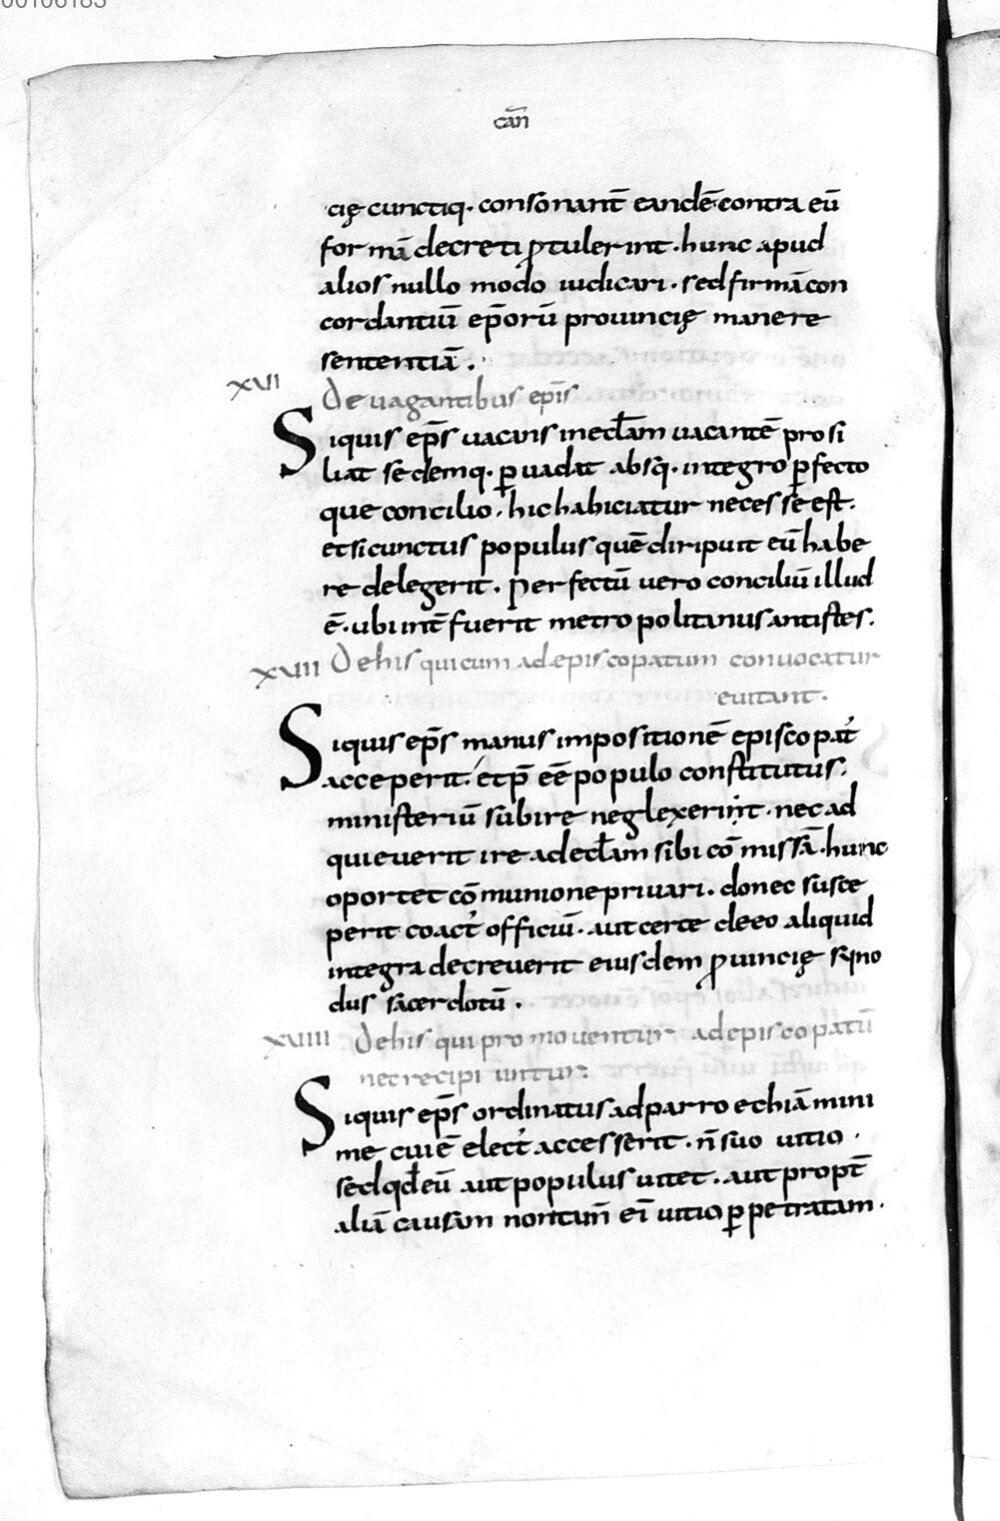 00106183
cāñ
cię cunctiq· consonant̄ eandē contra eū
formā decreti ꝓtulerint · hunc apud
alios nullo modo iudicari · sed firmā con
cordantiū ep̄orū prouincię manere
sententiā ·
XVI De uagantibus ep̄is
Siquis ep̄s uacans in eccłam uacantē prosi
liat sedemq· ꝑuadat absq· integro ꝑfecto
que concilio · hic habiciatur necesse est ·
et si cunctus populus quē diripuit eū habe
re delegerit · Perfectū uero conciliū illud
ē · ubi int̄fuerit metropolitanus antistes ·
XVIII De his qui cum ad episcopatum conuocatur
euitant ·
Siquis ep̄s manus impositionē episcopat᾽
acceperit · et p̄ eē populo constitutus ·
ministeriū subire neglexerint · nec ad
quieuerit ire ad eccłam sibi cōmissā · hunc
oportet cōmunione priuari · donec susce
perit coact᾽ officiū · aut certe de eo aliquid
integra decreuerit eiusdem ꝓuincię sẏno
dus sacerdotū ·
XVIIII De his qui promouentur ad episcopatū
nec recipiuntur :
Siquis ep̄s ordinatus ad parroechiā mini
me cui ē elect᾽ accesserit · n̄ suo uitio ·
sed qđ eū aut populus uitet · aut propt̄
aliā causam non tam̄ ei᾽ uitio ꝑpetratam ·